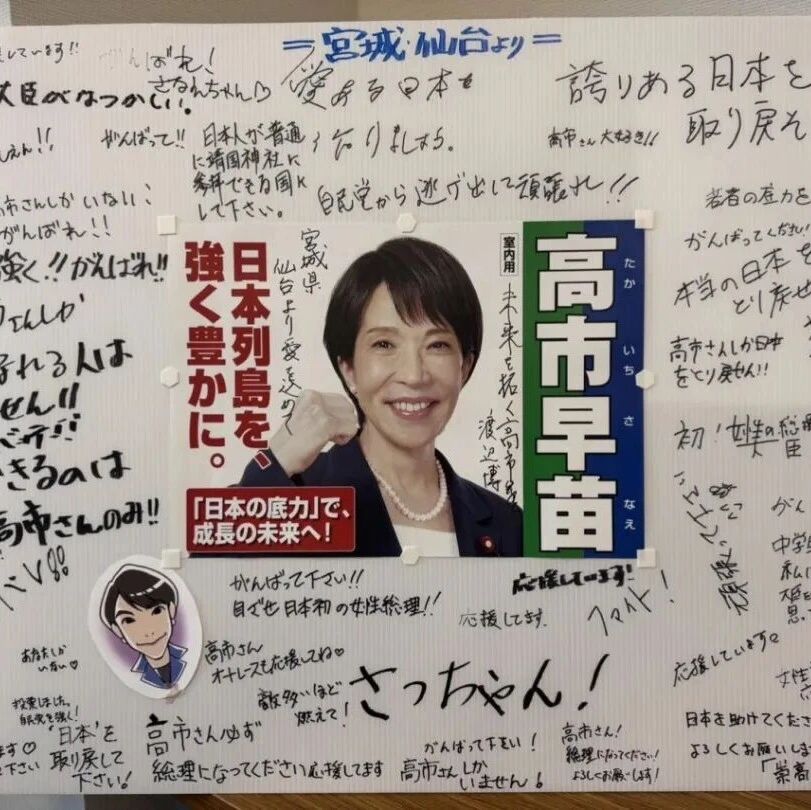 ＝宮城・仙台より＝
がんばれ！
さなえちゃん♡
大臣がなつかしい。
がんばって!!
愛ある日本を
誇りある日本を
取り戻そ
高市さん大好き!!
日本人が普通
に靖国神社に
参拝できる国に
して下さい。
自民党から逃げ出して頑張れ!!
若者の底力を
がんばってくれ!!
本当の日本を
とり戻せ
高市さんしか日本
をとり戻せん!!
高市さんしかいない
がんばれ!!
強く!!がんばれ!!
れる人は
せん!!
きるのは
高市さんのみ!!
日本列島を、
強く豊かに。
宮城県
仙台より愛を込めて
室内用
未来を拓く高市早苗
渡辺博
高市早苗
たか いち さ なえ
「日本の底力」で、
成長の未来へ！
初！女性の総
がんばって下さい!!
目ざせ日本初の女性総理!!
応援しています!
応援してます。
ファイト！
高市さん
オトレースも応援してね♡
敵多いほど
燃えて！
さっちゃん！
あなたしか
いない♡
投票しました。
「日本」を
取り戻して
下さい！
高市さん必ず
総理になってください応援してます
がんばって下さい！
高市さんしか
いません！
高市さん！
総理になってください！
よろしくお願いします！
応援しています
日本を助けてくださ
よろしくお願いしま
「崇高